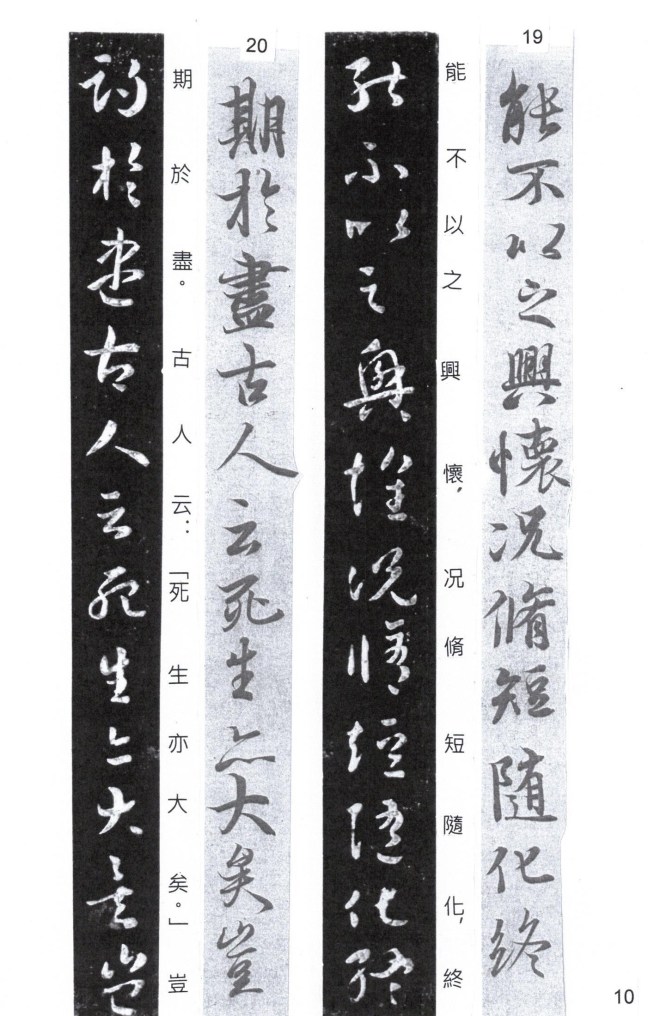 19
能不以之興懷况脩短隨化終
能不以之興懷,况脩短隨化,終
能不以之興懷况脩短隨化終
20
期於盡古人云死生亦大矣豈
期於盡。古人云:「死生亦大矣。」豈
期於盡古人云死生亦大矣豈
10